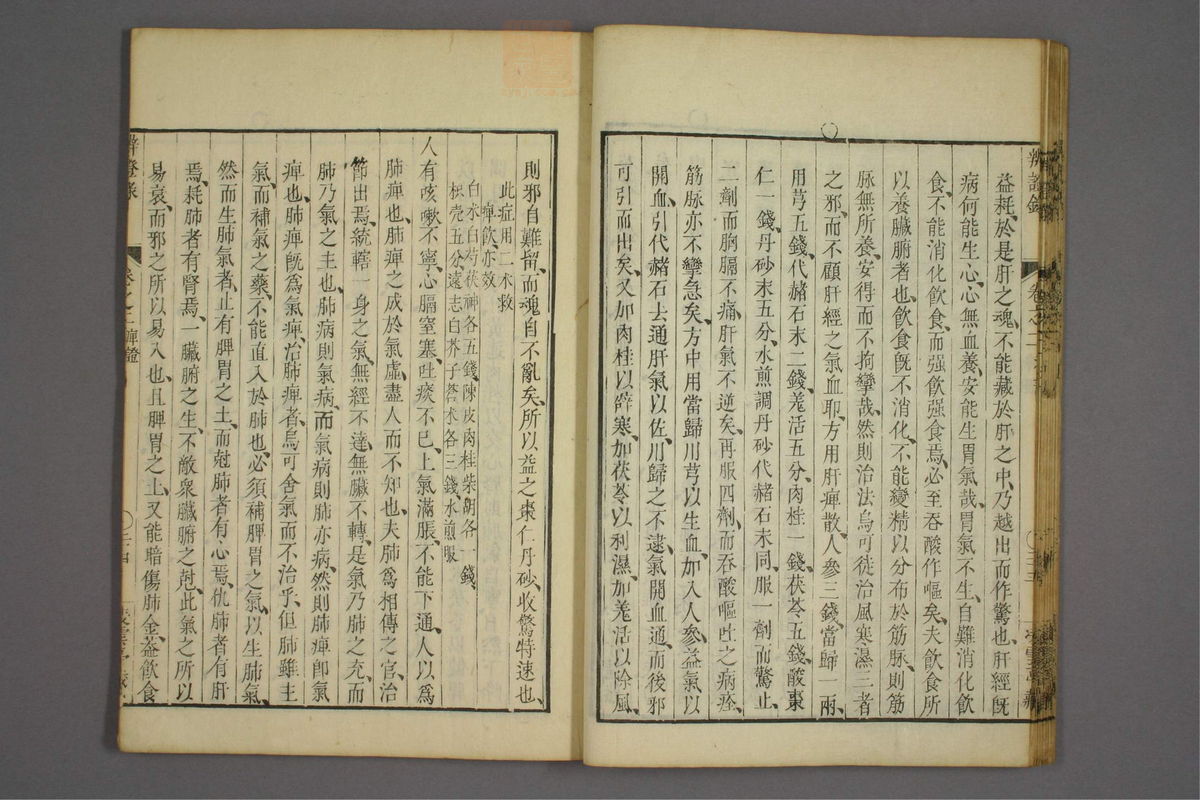 益耗於是肝之魂不能藏於肝之中乃越出而作驚也肝經既
病何能生心心無血養安能生胃氣哉胃氣不生自難消化飲
食不能消化飲食而强飲强食焉必至吞酸作嘔矣夫飲食所
以養臟腑者也飲食既不消化不能變精以分布於筋脉則筋
脉無所養安得而不拘攣哉然則治法烏可徒治風寒濕三者
之邪而不顧肝經之氣血耶方用肝痺散人參三錢當歸一兩
川芎五錢代赭石末二錢羗活五分肉桂一錢茯苓五錢酸棗
仁一錢丹砂末五分水煎調丹砂代赭石末同服一劑而驚止
二劑而胸膈不痛肝氣不逆矣再服四劑而吞酸嘔吐之病痊
筋脉亦不攣急矣方中用當歸川芎以生血加入人參益氣以
開血引代赭石去通肝氣以佐川歸之不逮氣開血通而後邪
可引而出矣又加肉桂以辟寒加茯苓以利濕加羗活以除風
則邪自難留而魂自不亂矣所以益之棗仁丹砂收驚特速也
此症用二朮救
痺飲亦效
白朮白芍茯神各五錢陳皮肉桂柴胡各一錢
枳壳五分遠志白芥子蒼朮各三錢水煎服
人有咳嗽不寧心膈窒塞吐痰不已上氣滿脹不能下通人以爲
肺痺也肺痺之成於氣虛盡人而不知也夫肺爲相傳之官治
節出焉統轄一身之氣無經不達無臟不轉是氣乃肺之充而
肺乃氣之主也肺病則氣病而氣病則肺亦病然則肺痺卽氣
痺也肺痺既爲氣痺治肺痺者烏可舍氣而不治乎但肺雖主
氣而補氣之藥不能直入於肺也必須補脾胃之氣以生肺氣
然而生肺氣者止有脾胃之土而尅肺者有心焉仇肺者有肝
焉耗肺者有腎焉一臟腑之生不敵衆臟腑之尅此氣之所以
易衰而邪之所以易入也且脾胃之土又能暗傷肺金益飲食
辨證錄
卷之二痺證